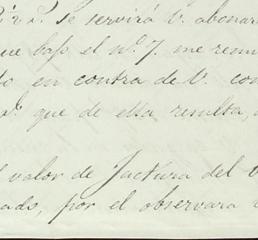 se servirá V. abonar
que bajo el nº 7. me remi
en contra de V. con
que de ella resulta,
valor de factura del
por el observará